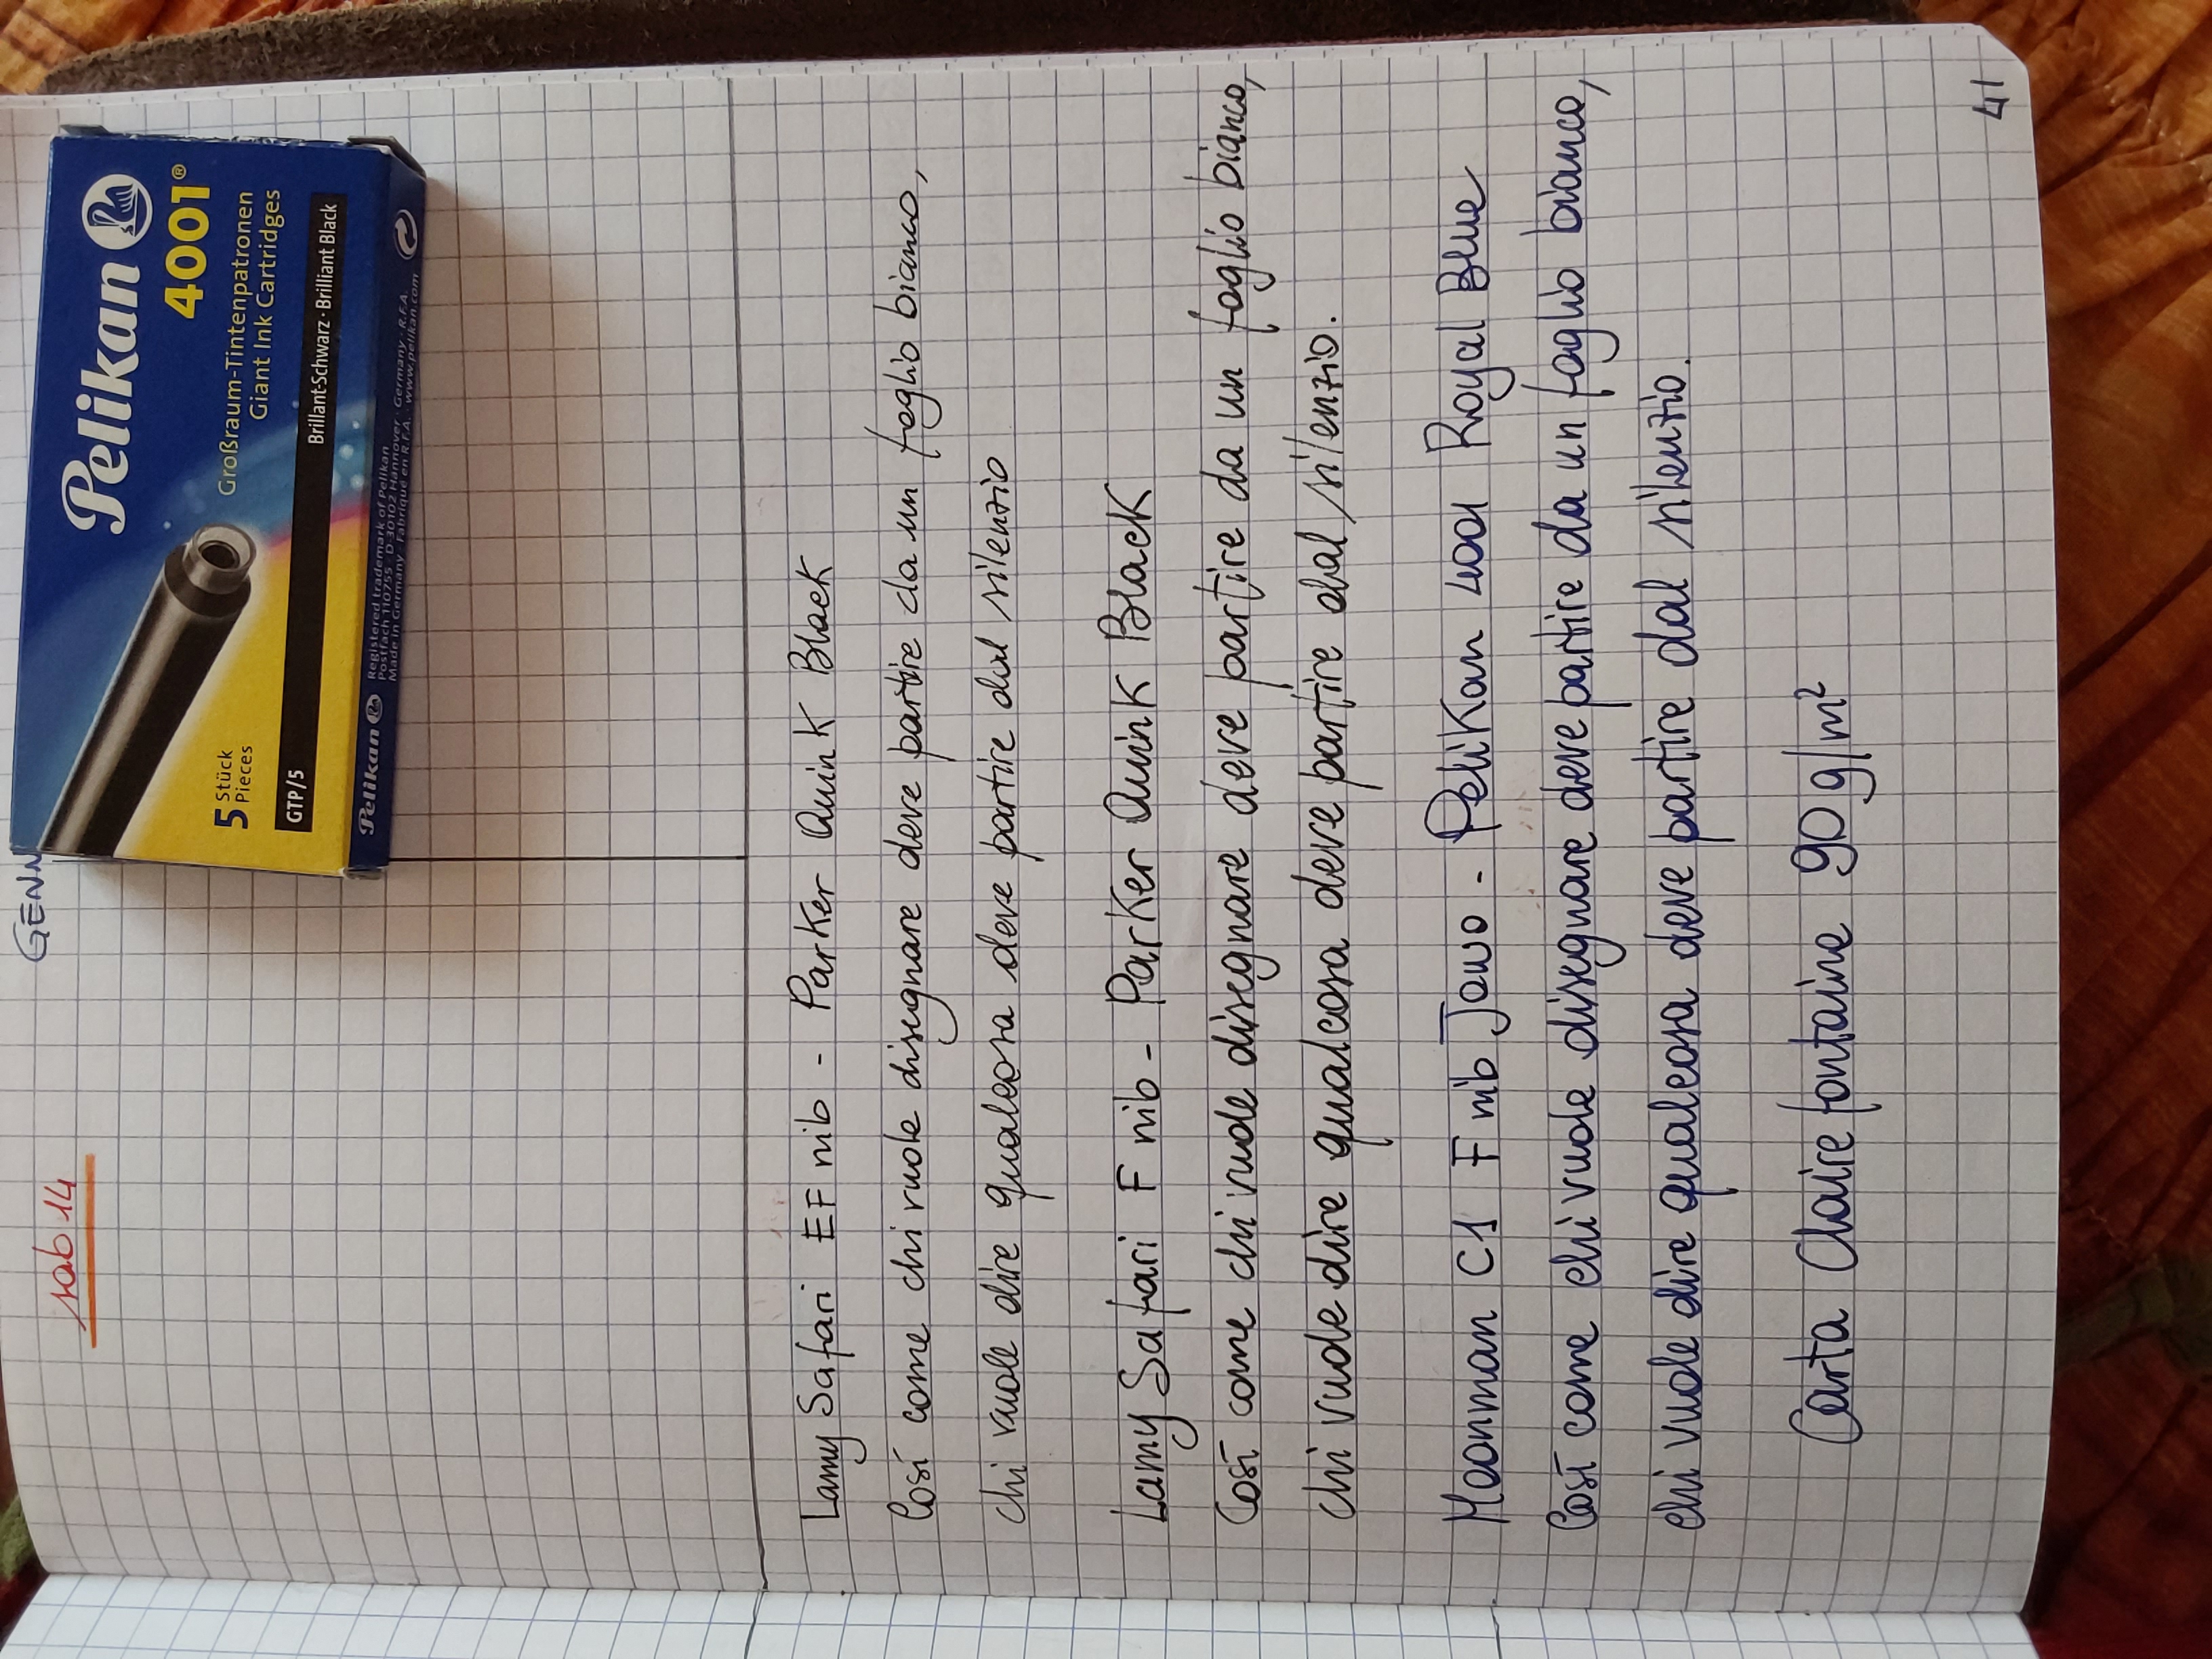 GENN
sab 14
Pelikan
4001®
Großraum-Tintenpatronen
Giant Ink Cartridges
5 Stück
Pieces
GTP/5
Brillant-Schwarz · Brilliant Black
Pelikan
Registered trademark of Pelikan
Postfach 110755 · D-30102 Hannover · Germany · R.F.A.
Made in Germany · Fabriqué en R.F.A. · www.pelikan.com
Lamy Safari EF nib - Parker Quink Black
Così come chi vuole disegnare deve partire da un foglio bianco,
chi vuole dire qualcosa deve partire dal silenzio
Lamy Safari F nib - Parker Quink Black
Così come chi vuole disegnare deve partire da un foglio bianco,
chi vuole dire qualcosa deve partire dal silenzio.
Moonman C1 F nib Jowo - Pelikan 4001 Royal Blue
Così come chi vuole disegnare deve partire da un foglio bianco,
chi vuole dire qualcosa deve partire dal silenzio.
Carta Clairefontaine 90 g/m²
41